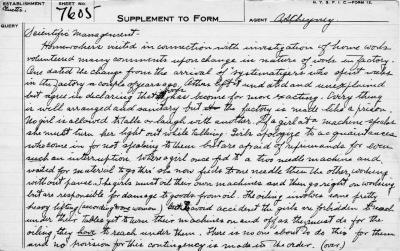 ESTABLISHMENT
SHEET NO.
N.Y.S.F.I.C.—FORM 12.
7605
SUPPLEMENT TO FORM
AGENT
QUERY
Scientific Management.
Homeworkers visited in connection with investigation of home work
volunteered many comments upon change in nature of work in factory.
One dated the change from the arrival of systematizers who spent weeks
in the factory a couple of years ago. Others left undated and unexplained
but agree in declaring that jobs become far more exacting. Every thing
is well arranged and sanitary but the factory is made like a prison.
No girl is allowed to talk or laugh with another. If a girl at a machine speaks
she must turn her light out while talking. Girls apologize to acquaintances
who come in for not speaking to them but are afraid of reprimands for even
such an interruption. Where a girl once fed to a two needle machine and
waited for material to go thru she now feeds to one needle then the other, working
without pause. The girls must oil their own machines and then go right on working
but are responsible for damage to goods from oil. The oiling involves some pretty
heavy lifting accident the girls are forbidden to reach
under their tables yet to turn their machines on and off as they must do for the
oiling they have to reach under them. There is no one about to do this for them
and no provision for this contingency is made in the order. (over)